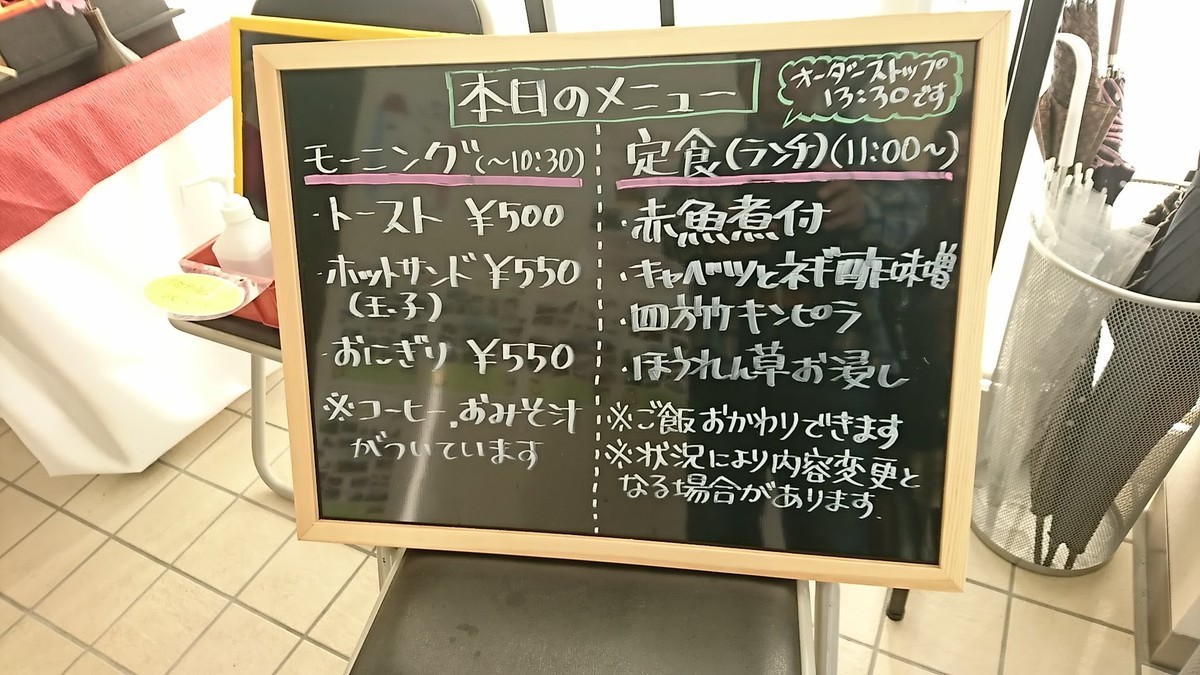 本日のメニュー
オーダーストップ
13:30です
モーニング(~10:30)
・トースト ¥500
・ホットサンド ¥550
(玉子)
・おにぎり ¥550
※コーヒー、おみそ汁
がついています
定食(ランチ)(11:00~)
・赤魚煮付
・キャベツとネギ酢味噌
・四方竹キンピラ
・ほうれん草お浸し
※ご飯おかわりできます
※状況により内容変更と
なる場合があります.